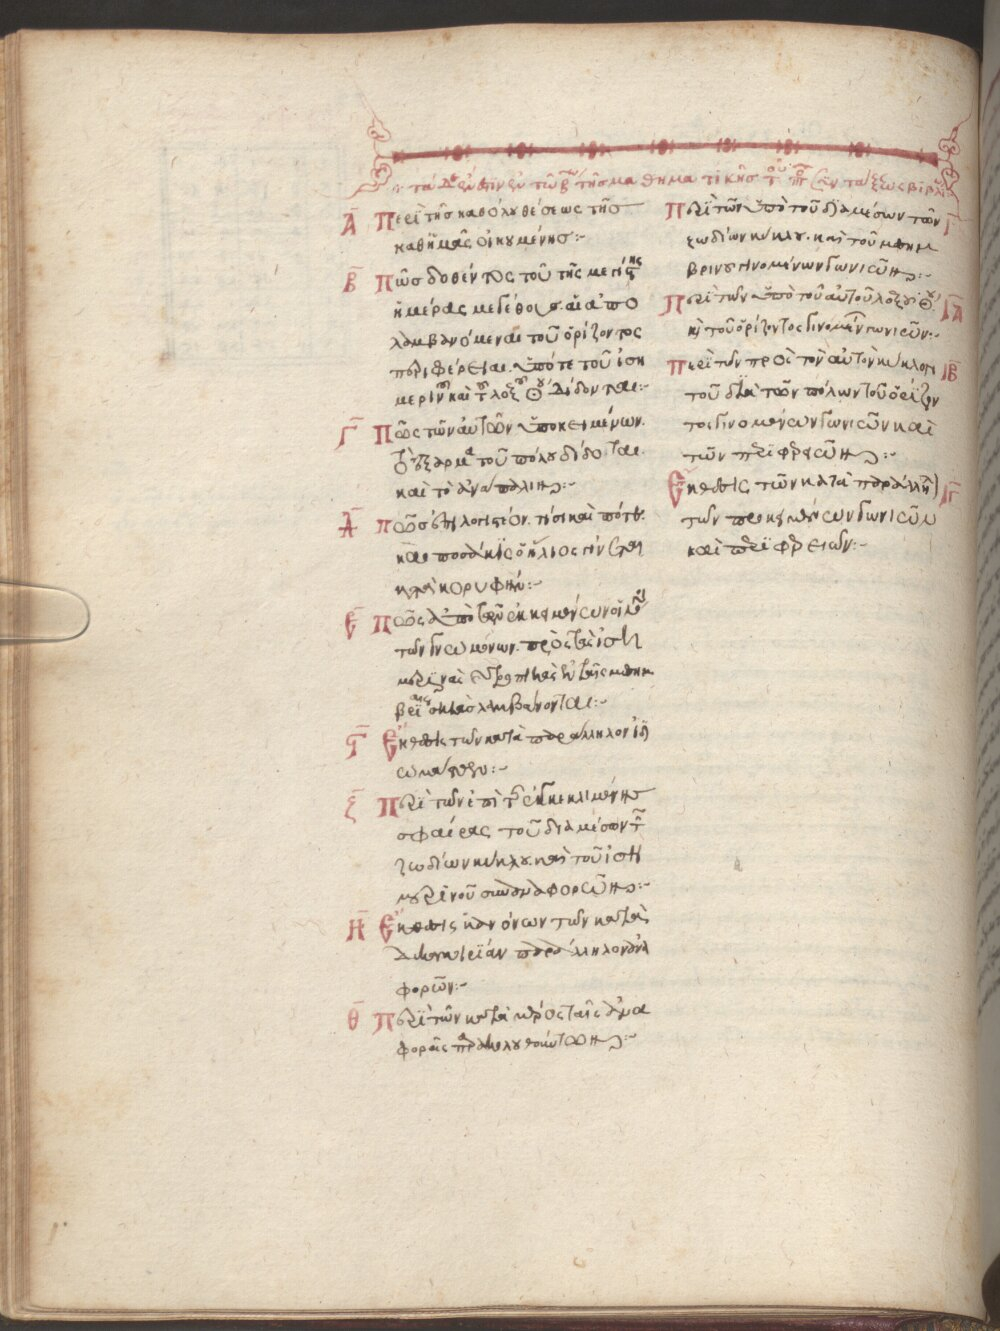 τάδε ἔνεστιν ἐν τῷ β τῆς μαθηματικῆς συντάξεως βιβλίῳ
Α Περὶ τῆς καθόλου θέσεως τῆς
καθ ἡμᾶς οἰκουμένης:-
Β Πῶς δοθέντος τοῦ τῆς μεγίστης
ἡμέρας μεγέθους. αἱ ἀπο
λαμβανόμεναι τοῦ ὁρίζοντος
περιφέρειαι. ὑπό τε τοῦ ἰση
μερινοῦ καὶ τοῦ λοξοῦ κύκλου δίδονται:-
Γ Πῶς τῶν αὐτῶν ὑποκειμένων.
τὸ ἔξαρμα τοῦ πόλου δίδοται
καὶ τὸ ἀνάπαλιν:-
Δ Πῶς ἐπιλογιστέον. τίσι καὶ πότε.
καὶ ποσάκις ὁ ἥλιος γίνεται
κατὰ κορυφήν:-
Ε Πῶς ἀπὸ τῶν ἐκκειμένων οἱ λόγοι
τῶν γνωμόνων. πρὸς τὰς ἰση
μερινὰς καὶ τροπικὰς ἐν ταῖς μεσημ
βρίαις σκιὰς λαμβάνονται:-
ϛ Ἔκθεσις τῶν κατὰ παράλληλον ἰδι
ωμάτων:-
Ζ Περὶ τῶν ἐπὶ τῆς ἐγκεκλιμένης
σφαίρας τοῦ διὰ μέσων τῶν
ζωδίων κύκλου. καὶ τοῦ ἰση
μερινοῦ συναναφορῶν:-
Η Ἔκθεσις κανόνων τῶν κατὰ
δεκαμοιρίαν παράλληλον ἀνα
φορῶν:-
Θ Περὶ τῶν κατὰ μέρος ταῖς ἀνα
φοραῖς παρακολουθούντων:-
Ι Περὶ τῶν ὑπὸ τοῦ διὰ μέσων τῶν
ζωδίων κύκλου. καὶ τοῦ μεσημ
βρινοῦ γινομένων γωνιῶν:-
ΙΑ Περὶ τῶν ὑπὸ τοῦ αὐτοῦ λοξοῦ κύκλου
καὶ τοῦ ὁρίζοντος γινομένων γωνιῶν:-
ΙΒ Περὶ τῶν πρὸς τὸν αὐτὸν κύκλον
τοῦ διὰ τῶν πόλων τοῦ ὁρίζον
τος γινομένων γωνιῶν καὶ
τῶν περιφερειῶν:-
ΙΓ Ἔκθεσις τῶν κατὰ παράλληλον
τῶν προκειμένων γωνιῶν
καὶ περιφερειῶν:-